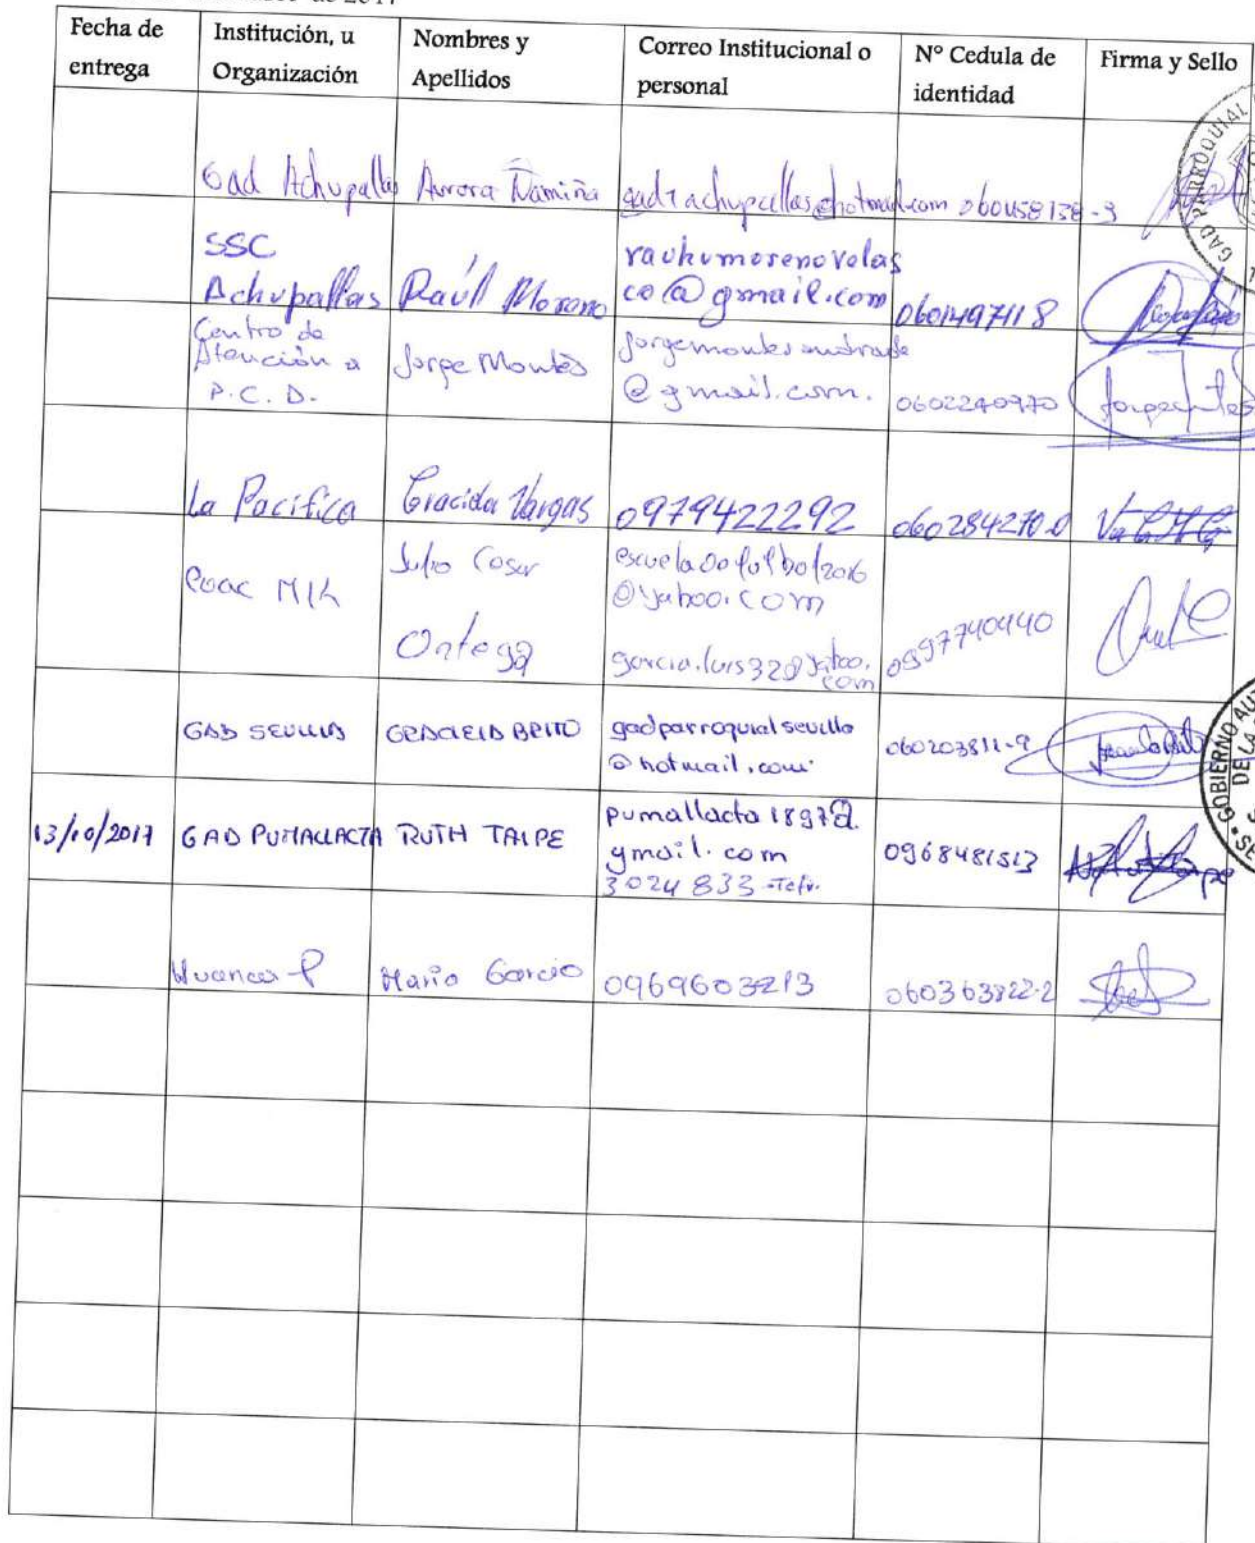 de 2017
Fecha de entrega
Institución, u Organización
Nombres y Apellidos
Correo Institucional o personal
Nº Cedula de identidad
Firma y Sello
Gad Achupallas Aurora Ñamiña gad7achupallas@hotmail.com
GAD PARROQUIAL
SSC Achupallas Raúl Moreno raukumorenovelas
co@gmail.com 0601497118
Centro de Atención a P.C.D. Jorge Montes jorgemontesandrade
@gmail.com. 0602240970
La Pacifica Gracida Vargas 0979422292 060284270-0
Coac Julio Cesar Ortega escuela00futbol2016
@yahoo.com
garcia.luis32@yahoo.com 0997740440
GAD SEVILLA GRACIELA BRITO gadparroquialsevilla
@hotmail.com 060203811-9
GOBIERNO AUT
DE LA
13/10/2017 GAD PUMALLACTA RUTH TAIPE pumallacta1897@
gmail.com 0968481513
3024833-Telf.
Mario Garcia 0969603213 060363822-2